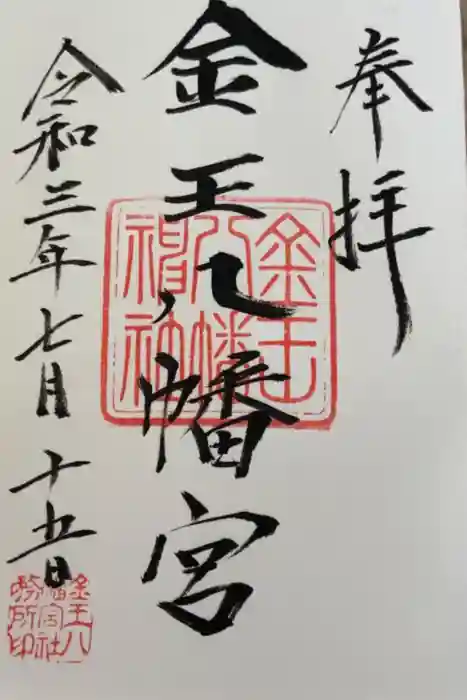 奉拝
金王八幡宮
金王八幡神社
令和三年七月十五日
金王八幡宮社務所印